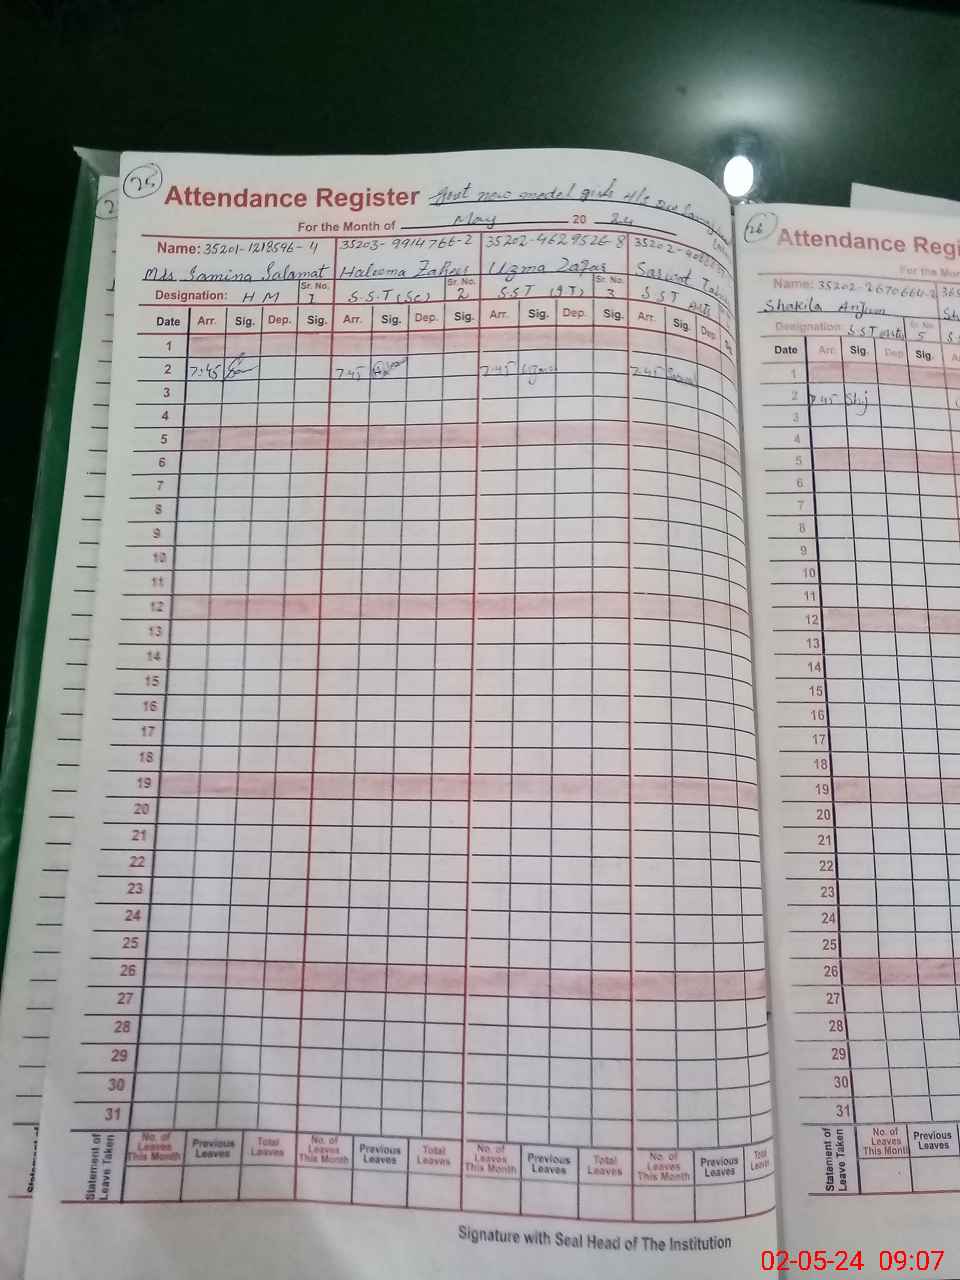 25
Attendance Register Govt new model girls H/S
For the Month of May 20 24
Name: 35201-1213596-4 35203-9914766-2 35202-4629526-8 35202-
Mrs. Samina Salamat Haleema Uzma Zafar Sarwat
Sr. No. Sr. No. Sr. No.
Designation: H M 1 S.S.T (Sc) 2 S.S.T 3 S.S.T arts
Date Arr. Sig. Dep. Sig. Arr. Sig. Dep. Sig. Arr. Sig. Dep. Sig. Arr. Sig. Dep. Sig.
1
2 7:45 7:45 7:45 7:45
3
4
5
6
7
8
9
10
11
12
13
14
15
16
17
18
19
20
21
22
23
24
25
26
27
28
29
30
31
Statement of Leave Taken
No. of Leaves This Month Previous Leaves Total Leaves No. of Leaves This Month Previous Leaves Total Leaves No. of Leaves This Month Previous Leaves Total Leaves No. of Leaves This Month Previous Leaves Total Leaves
Signature with Seal Head of The Institution
26
Attendance Regi
For the Mon
Name: 35202-2670664-2
Shakila Anjum Sh
Designation: S.S.T arts Sr. No. 5
Date Arr. Sig. Dep. Sig.
1
2 7:45
3
4
5
6
7
8
9
10
11
12
13
14
15
16
17
18
19
20
21
22
23
24
25
26
27
28
29
30
31
Statement of Leave Taken
No. of Leaves This Month Previous Leaves
02-05-24 09:07